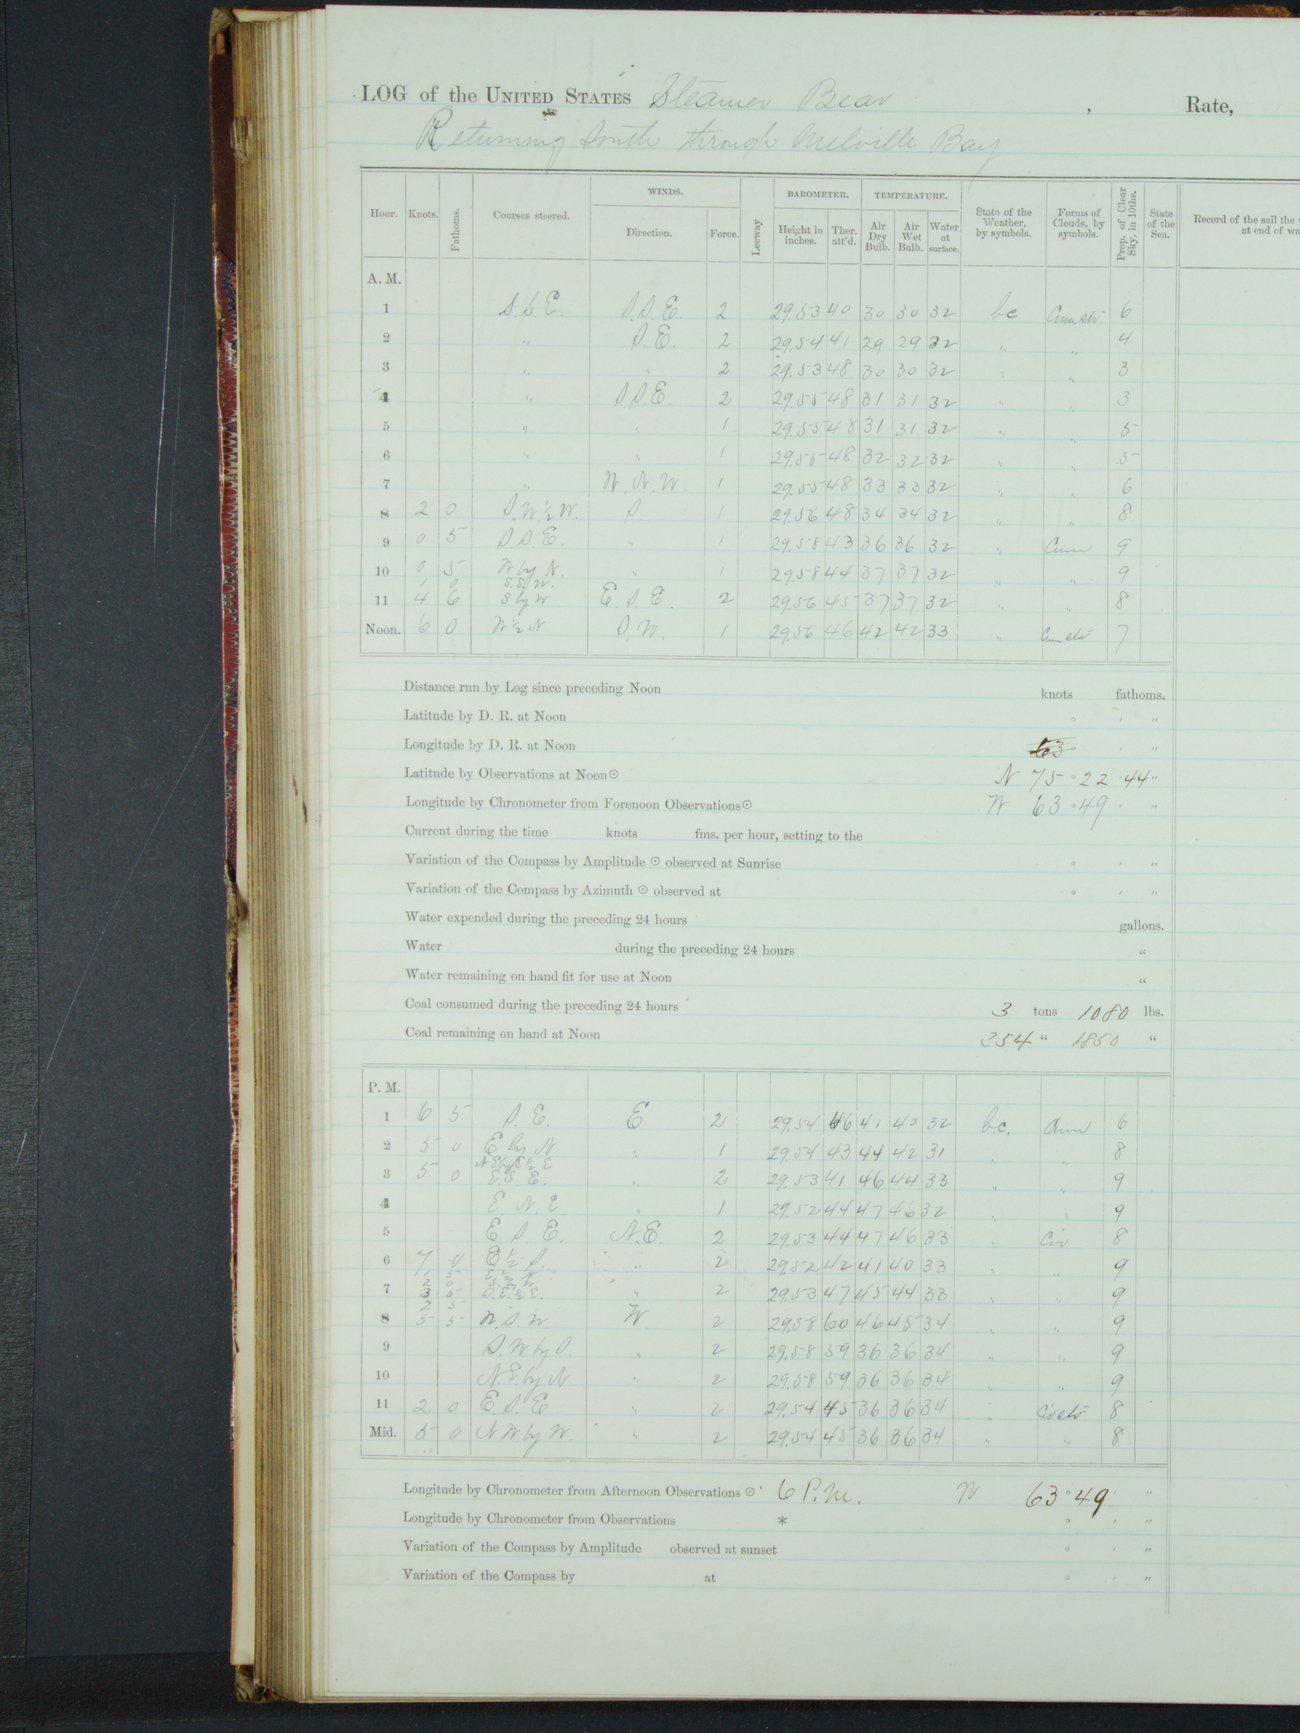 LOG of the UNITED STATES Steamer Bear , Rate,
Returning South through Melville Bay
Hour. Knots. Fathoms. Courses steered. WINDS. Direction. Force. Leeway BAROMETER. Height in inches. Ther. att'd. TEMPERATURE. Air Dry Bulb. Air Wet Bulb. Water at surface. State of the Weather, by symbols. Forms of Clouds, by symbols. Prop. of Clear Sky, in 10ths. State of the Sea. Record of the sail the v at end of wa
A. M.
1 S.S.E. S.S.E 2 29.53 40 30 30 32 bc Cum str 6
2 " S.E. 2 29.54 41 29 29 32 " " 4
3 " " 2 29.53 48 30 30 32 " " 3
4 " S.S.E. 2 29.55 48 31 31 32 " " 3
5 " " 1 29.55 48 31 31 32 " " 5
6 " " 1 29.55 48 32 32 32 " " 5
7 " W.N.W. 1 29.55 48 33 33 32 " " 6
8 2 0 S.W.½W. S 1 29.56 48 34 34 32 " " 8
9 0 5 S.S.E. " 1 29.58 43 36 36 32 " Cum 9
10 0 5 W by N. " 1 29.58 44 37 37 32 " " 9
1 0 S.S.W.
11 4 6 S by W E.S.E. 2 29.56 45 37 37 32 " " 8
Noon. 6 0 W ½ N S.W. 1 29.56 46 42 42 33 " Cum str 7
Distance run by Log since preceding Noon knots fathoms.
Latitude by D. R. at Noon ° ' "
Longitude by D. R. at Noon 63 ' "
Latitude by Observations at Noon☉ N 75 ° 22 ' 44 "
Longitude by Chronometer from Forenoon Observations☉ W 63 ° 49 ' "
Current during the time knots fms. per hour, setting to the
Variation of the Compass by Amplitude ☉ observed at Sunrise ° ' "
Variation of the Compass by Azimuth ☉ observed at ° ' "
Water expended during the preceding 24 hours gallons.
Water during the preceding 24 hours "
Water remaining on hand fit for use at Noon "
Coal consumed during the preceding 24 hours 3 tons 1080 lbs.
Coal remaining on hand at Noon 254 " 1850 "
P. M.
1 6 5 S.E. E 2 29.54 46 41 40 32 b.c. Cum 6
2 5 0 E by N " 1 29.54 43 44 42 31 " " 8
3 5 0 E.S.E. " 2 29.53 41 46 44 33 " " 9
4 E.N.E. " 1 29.52 44 47 46 32 " " 9
5 E.S.E. N.E. 2 29.53 44 47 46 33 " Cir 8
6 7 0 E ½ S. " 2 29.52 42 41 40 33 " " 9
7 3 5 S.E.½E. " 2 29.53 47 45 44 33 " " 9
8 5 5 W.S.W. W 2 29.58 60 46 45 34 " " 9
9 S.W by S. " 2 29.58 59 36 36 34 " " 9
10 N.E. by N " 2 29.58 59 36 36 34 " " 9
11 2 0 E.S.E " 2 29.54 45 36 36 34 " Cir str 8
Mid. 5 0 N W by W. " 2 29.54 45 36 36 34 " " 8
Longitude by Chronometer from Afternoon Observations ☉ 6 P.M. W 63 ° 49 ' "
Longitude by Chronometer from Observations * ° ' "
Variation of the Compass by Amplitude observed at sunset ° ' "
Variation of the Compass by at ° ' "